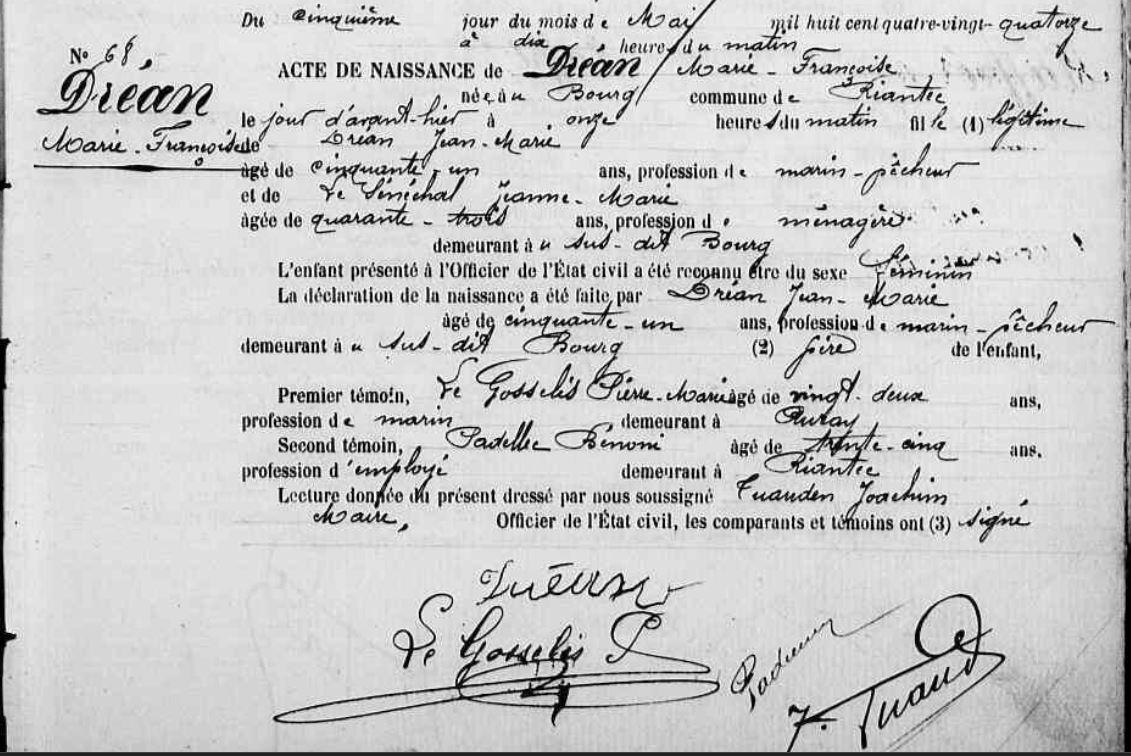 Du cinquième jour du mois de Mai mil huit cent quatre-vingt-quatorze
à dix heures du matin
N° 68.
ACTE DE NAISSANCE de Dréan Marie-Françoise
Dréan
née au Bourg commune de Riantec
le jour d'avant-hier à onze heures du matin fille (1) légitime
Marie-Françoise
de Dréan Jean-Marie
âgé de cinquante-un ans, profession de marin-pêcheur
et de Le Sénéchal Jeanne-Marie
âgée de quarante-trois ans, profession de ménagère
demeurant au sus-dit Bourg
L'enfant présenté à l'Officier de l'État civil a été reconnu être du sexe féminin
La déclaration de la naissance a été faite par Dréan Jean-Marie
âgé de cinquante-un ans, profession de marin-pêcheur
demeurant au sus-dit Bourg (2) père de l'enfant,
Premier témoin, Le Gosselis Pierre-Marie âgé de vingt-deux ans,
profession de marin demeurant à Auray
Second témoin, Padellec Bénoni âgé de trente-cinq ans.
profession d'employé demeurant à Riantec
Lecture donnée du présent dressé par nous soussigné Tuauden Joachim
Maire, Officier de l'État civil, les comparants et témoins ont (3) signé
Le Gosselis P